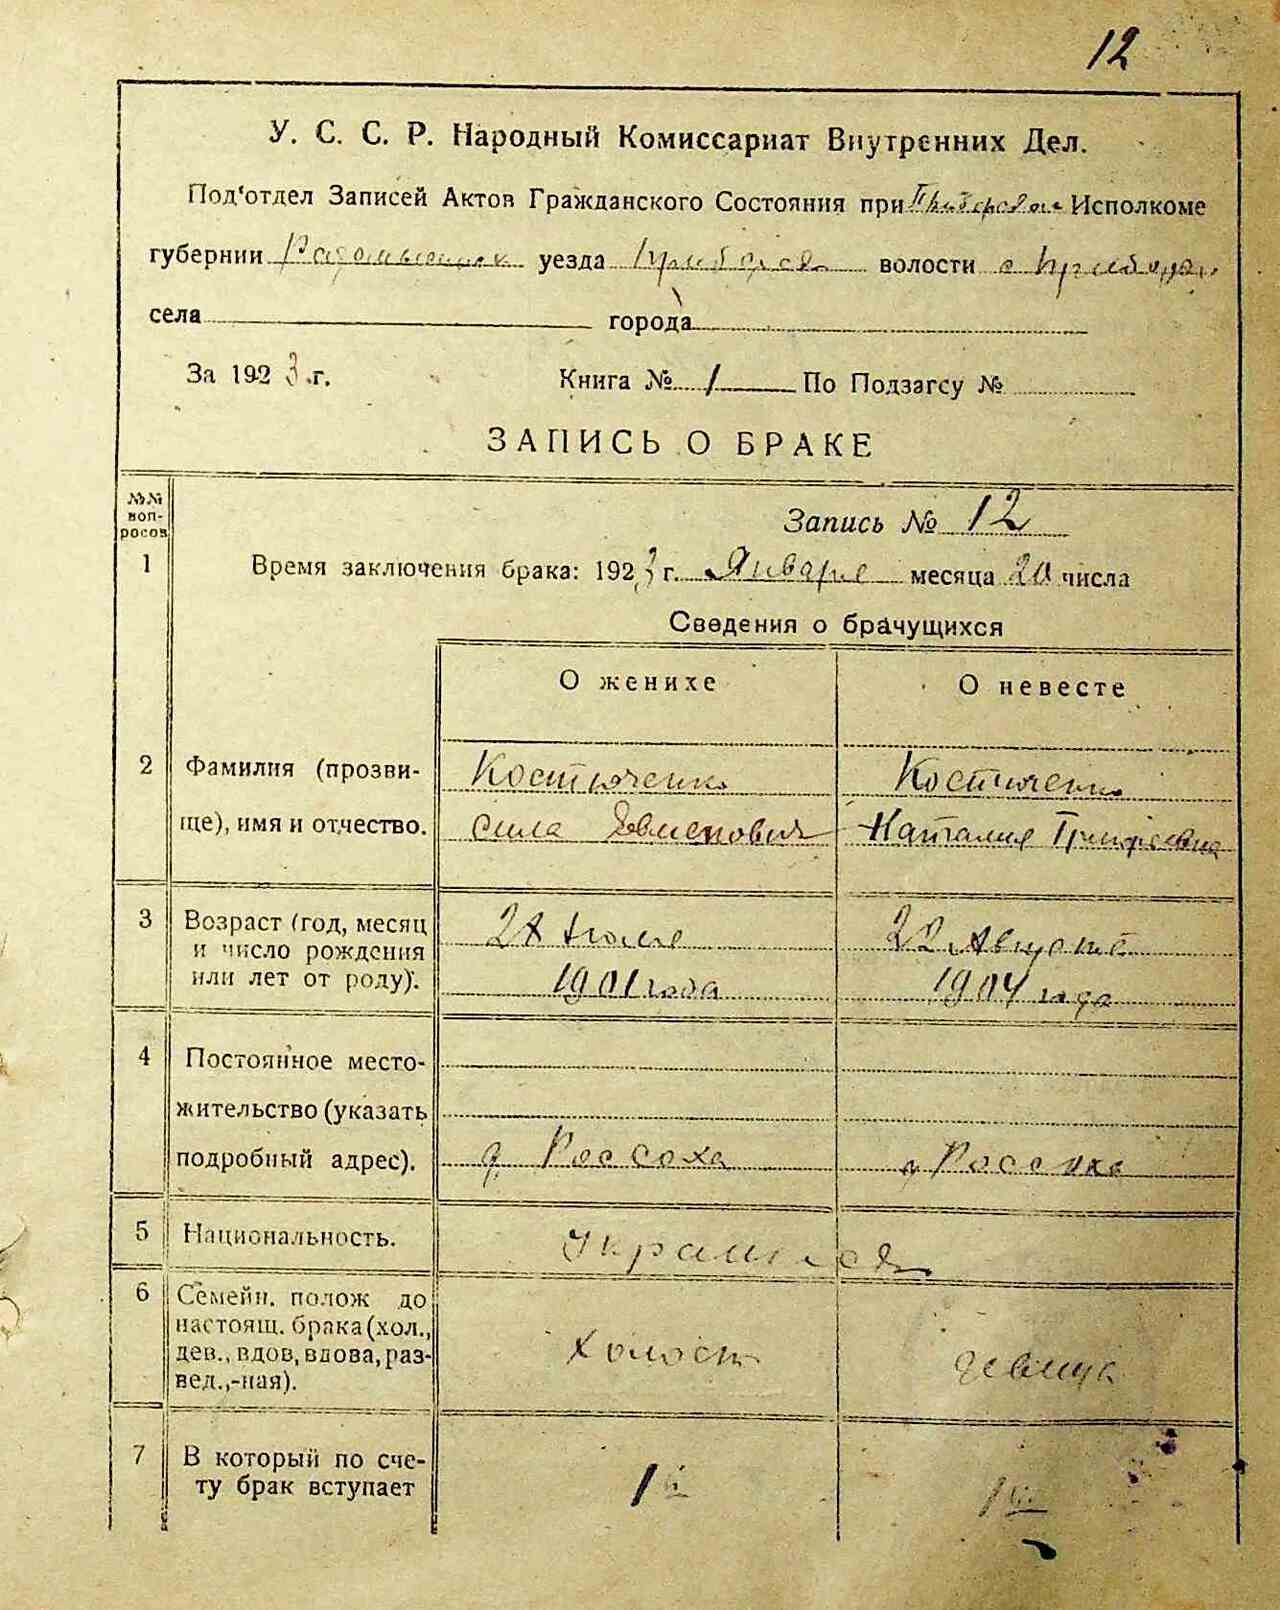 12
У. С. С. Р. Народный Комиссариат Внутренних Дел.
Под'отдел Записей Актов Гражданского Состояния при Исполкоме
губернии уезда волости
села города
За 1923 г. Книга № 1 По Подзагсу №
ЗАПИСЬ О БРАКЕ
№№ воп-
росов
Запись № 12
1 Время заключения брака: 1923 г. Января месяца 20 числа
Сведения о брачущихся
О женихе О невесте
2 Фамилия (прозви- Костюченко Костюченко
ще), имя и отчество. Сила Евменович Наталия Григоревна
3 Возраст (год, месяц Июля 22 Августа
и число рождения
или лет от роду). 1901 года 1904 года
4 Постоянное место-
жительство (указать
подробный адрес). д. Россоха д Россоха
5 Национальность.
6 Семейн. полож до
настоящ. брака (хол., холост девица
дев., вдов, вдова, раз-
вед.,-ная).
7 В который по сче- 1й 1й
ту брак вступает